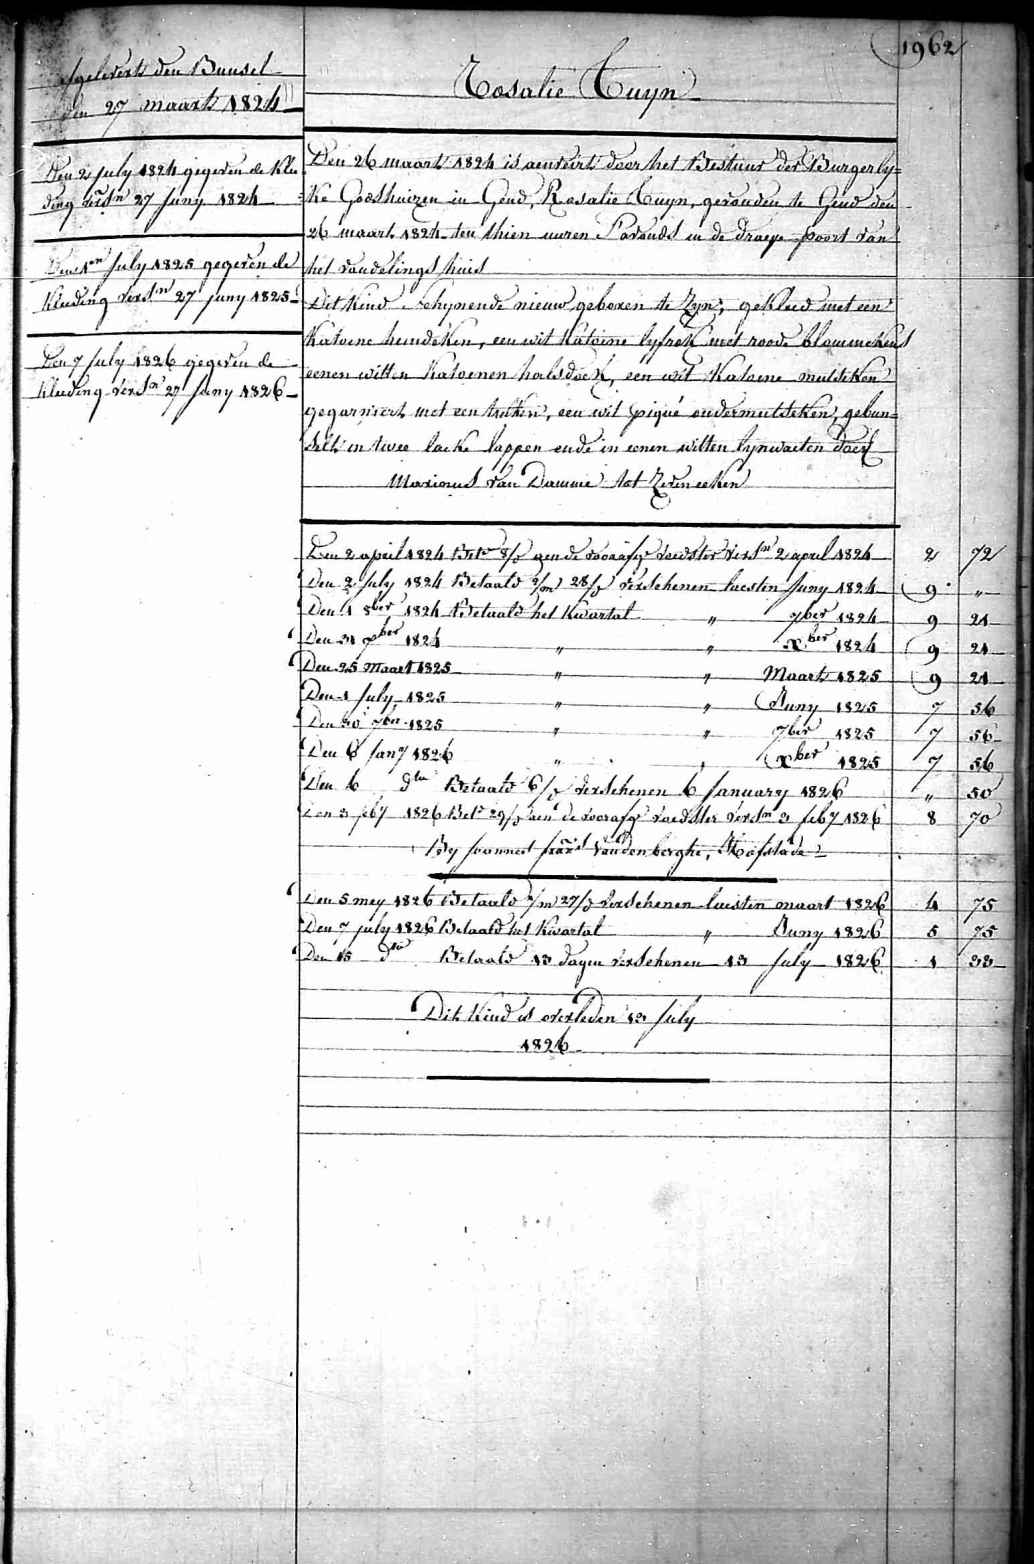 1962
afgelevert den Bunsel
den 27 maart 1824
Den 2 july 1824 gegeven de Klee
ding vers.n 27 Juny 1824
Den 1en July 1825 gegeven de
Kleeding vers.n 27 Juny 1825
Den 7 July 1826 gegeven de
Kleeding vers.n 27 Juny 1826
Rosalie Tuyn
Den 26 maart 1824 is aenveirt door het Bestuur der Burgerly=
ke Godshuizen in Gend, Rosalie Tuyn, gevonden te Gend den
26 maart 1824 ten thien uuren s'avonds in de draeye poort van
het vondelings huis
Dit Kind schynende nieuw geboren te zyn, gekleed met een
Katoene hemdeken, een wit Katoene lyfrok met roode blommekens
eenen witten Katoenen halsdoek, een wit Katoene mutseken
gegarniert met een kanten, een wit piqué ondermutseken, gebun=
selt in twee lacke lappen ende in eenen witten lynwaeten doek
Marianus van Damme tot Zeveneeken
Den 2 april 1824 Bet.d 8/d aen de voorafg.e voedster vers.n 2 april 1824 2 72
Den 2 July 1824 Betaald 2/m 28/d verschenen laesten Juny 1824 9 "
Den 1 8ber 1824 Betaald het Kwartal " 7ber 1824 9 21
Den 31 xber 1824 " " xber 1824 9 21
Den 25 Maart 1825 " " Maart 1825 9 21
Den 1 July 1825 " " Juny 1825 7 56
Den 30 7ber 1825 " " 7ber 1825 7 56
Den 6 Jany 1826 " " xber 1825 7 56
Den 6 dto Betaald 6/d verschenen 6 January 1826 " 50
Den 3 feby 1826 Bet.d 29/d aen de voorafg.e voedster vers.n 3 feby 1826 8 70
By Joannes frans Vandenberghe, Hofstade
Den 5 mey 1826 Betaald 1/m 27/d verschenen laesten maart 1826 4 75
Den 7 july 1826 Betaald het Kwartal " Juny 1826 5 75
Den 15 dto Betaald 13 dagen verschenen 13 July 1826 1 33
Dit Kind is overleden 13 July
1826